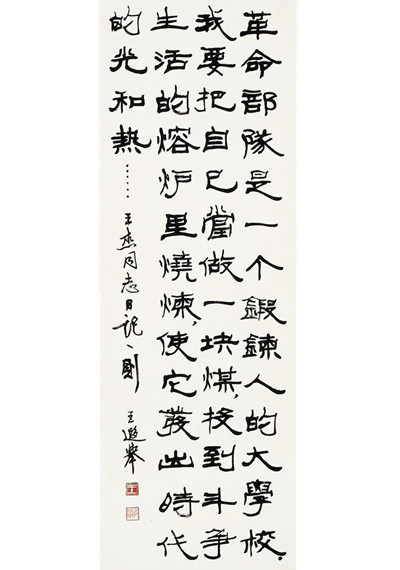 革命部隊是一个鍛鍊人的大學校.
我要把自己當做一块煤,投到斗争
生活的熔炉里燒煉,使它發出時代
的光和熱……
王杰同志日記一則
王遐舉